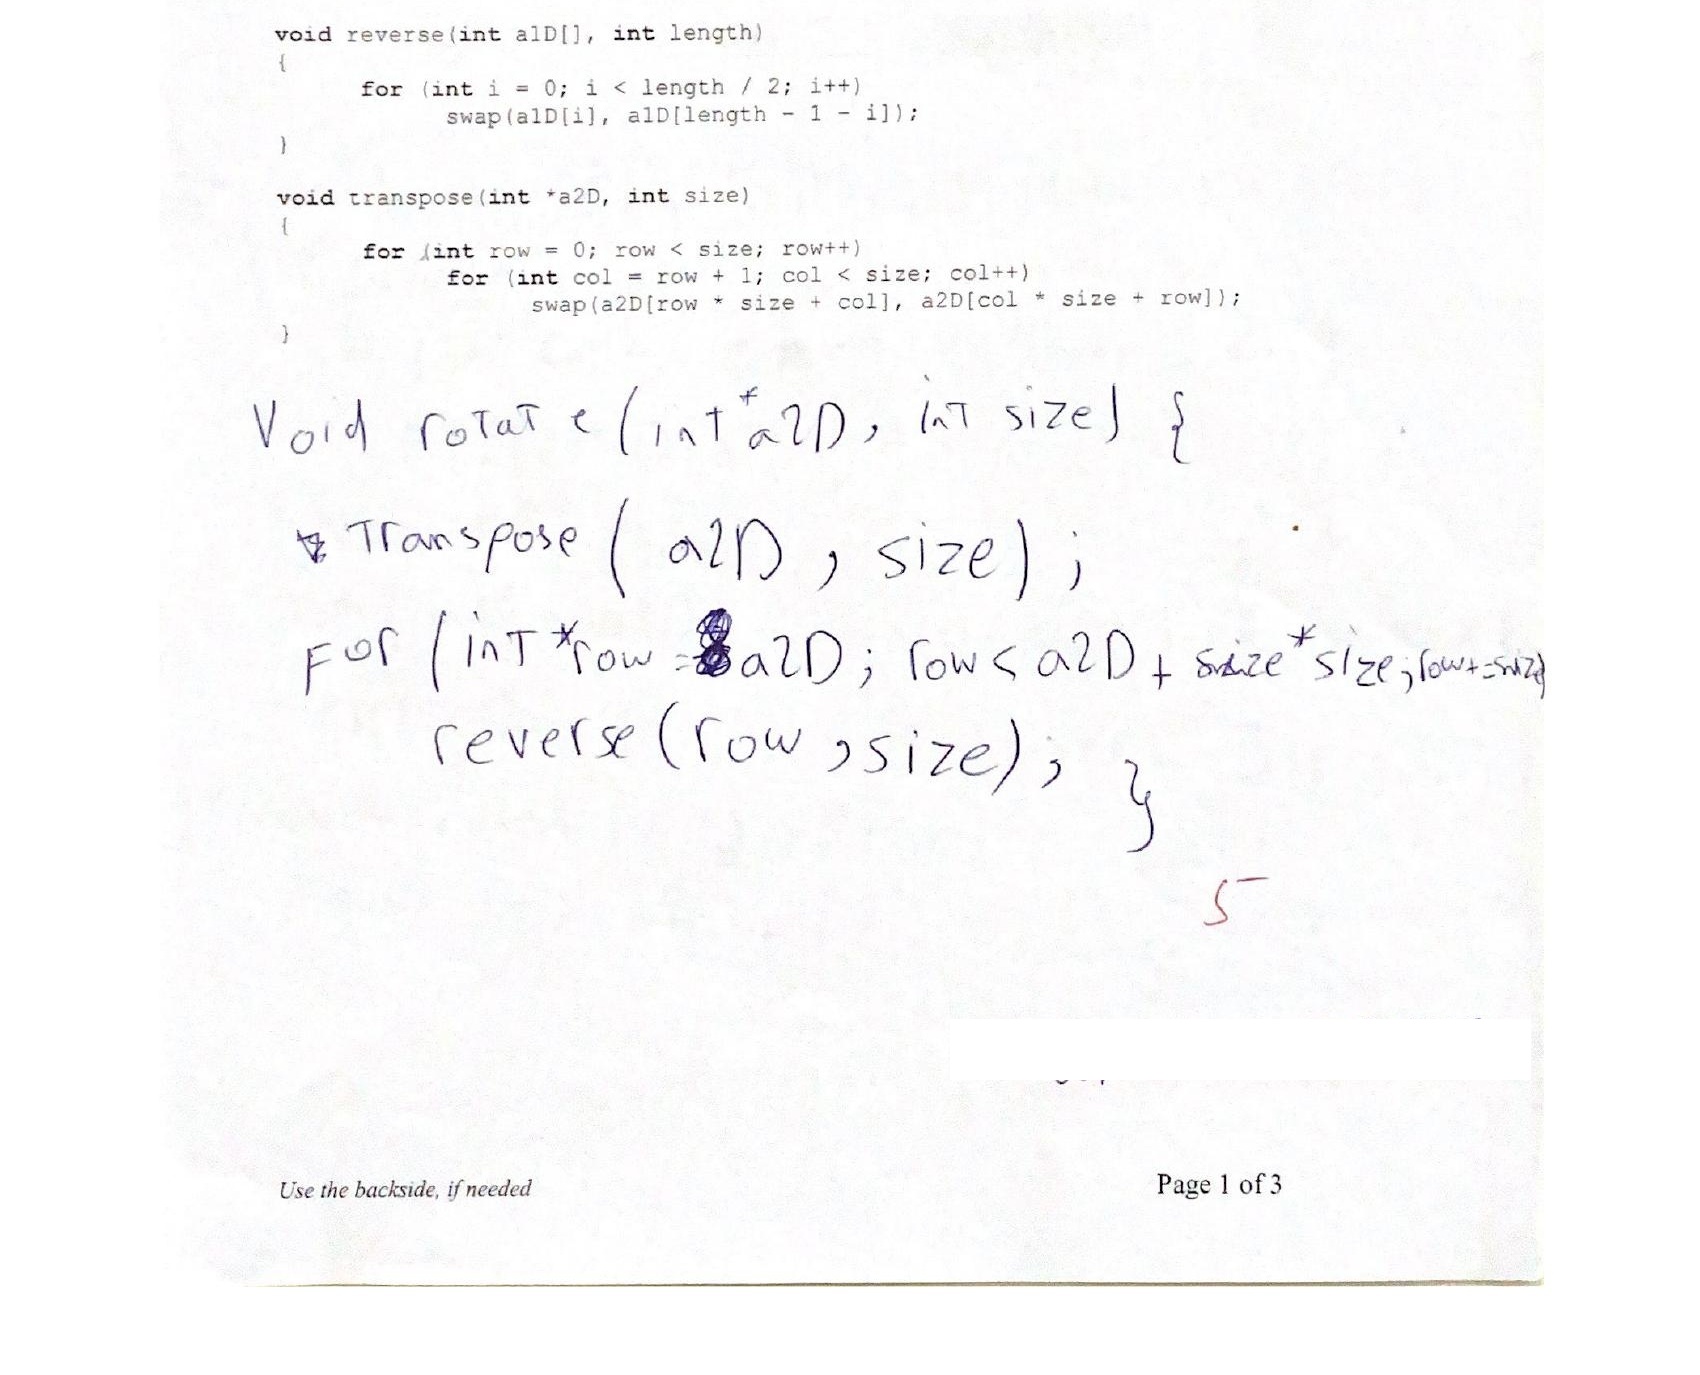 void reverse(int a1D[], int length)
{
for (int i = 0; i < length / 2; i++)
swap(a1D[i], a1D[length - 1 - i]);
}
void transpose(int *a2D, int size)
{
for (int row = 0; row < size; row++)
for (int col = row + 1; col < size; col++)
swap(a2D[row * size + col], a2D[col * size + row]);
}
Void rotate (int *a2D, int size) {
Transpose ( a2D , size) ;
For (int *row = a2D; row < a2D + size*size; row+=size)
reverse (row , size) ; }
5
Use the backside, if needed
Page 1 of 3